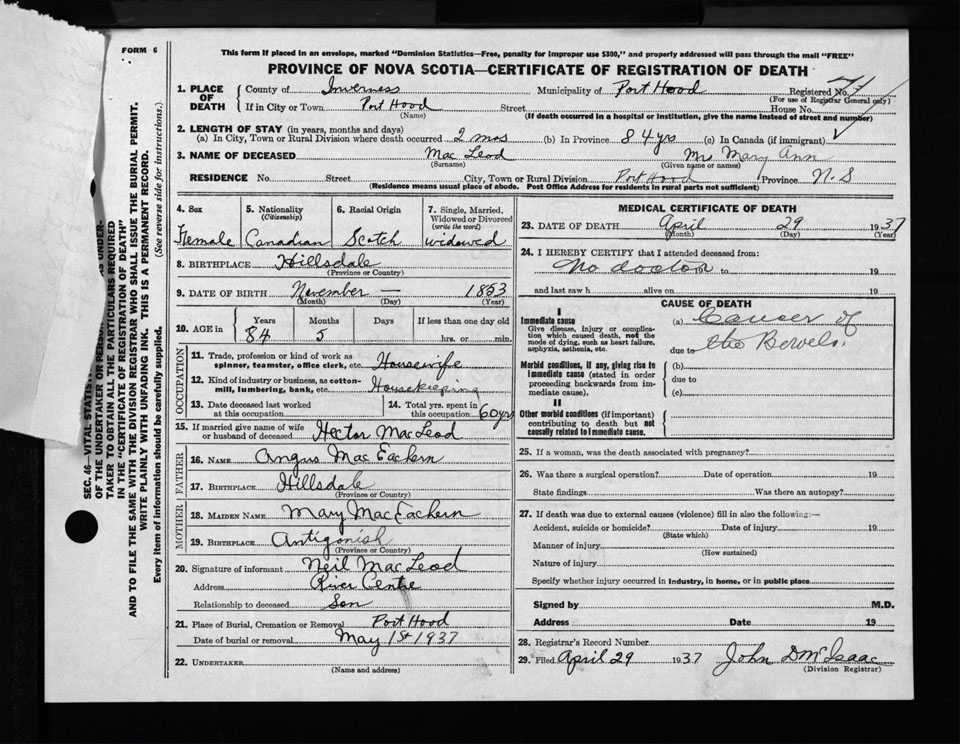 FORM 6
This form if placed in an envelope, marked "Dominion Statistics—Free, penalty for improper use $300," and properly addressed will pass through the mail "FREE"
PROVINCE OF NOVA SCOTIA—CERTIFICATE OF REGISTRATION OF DEATH
1. PLACE OF DEATH
County of Inverness Municipality of Port Hood Registered No.
(For use of Registrar General only)
If in City or Town Port Hood Street House No.
(Name) (If death occurred in a hospital or institution, give the name instead of street and number)
2. LENGTH OF STAY (in years, months and days)
(a) In City, Town or Rural Division where death occurred 2 mos (b) In Province 84 yrs (c) In Canada (if immigrant)
3. NAME OF DECEASED Mac Leod Mrs Mary Ann
(Surname) (Given name or names)
RESIDENCE No. Street City, Town or Rural Division Port Hood Province N.S
(Residence means usual place of abode. Post Office Address for residents in rural parts not sufficient)
4. Sex
Female
5. Nationality
(Citizenship)
Canadian
6. Racial Origin
Scotch
7. Single, Married,
Widowed or Divorced
(write the word)
widowed
8. BIRTHPLACE Hillsdale
(Province or Country)
9. DATE OF BIRTH November — 1853
(Month) (Day) (Year)
10. AGE in
Years Months Days If less than one day old
84 5 hrs. or min.
OCCUPATION
11. Trade, profession or kind of work as
spinner, teamster, office clerk, etc. Housewife
12. Kind of industry or business, as cotton-
mill, lumbering, bank, etc. Housekeeping
13. Date deceased last worked
at this occupation
14. Total yrs. spent in
this occupation 60 yrs
15. If married give name of wife
or husband of deceased Hector MacLeod
FATHER
16. NAME Angus Mac Eachern
17. BIRTHPLACE Hillsdale
(Province or Country)
MOTHER
18. MAIDEN NAME Mary Mac Eachern
19. BIRTHPLACE Antigonish
(Province or Country)
20. Signature of informant Neil Mac Leod
Address River Centre
Relationship to deceased Son
21. Place of Burial, Cremation or Removal Port Hood
Date of burial or removal May 1st 1937
22. UNDERTAKER
(Name and address)
MEDICAL CERTIFICATE OF DEATH
23. DATE OF DEATH April 29 1937
(Month) (Day) (Year)
24. I HEREBY CERTIFY that I attended deceased from:
No doctor to 19
and last saw h alive on 19
CAUSE OF DEATH
I
Immediate cause
Give disease, injury or complica-
tion which caused death, not the
mode of dying, such as heart failure,
asphyxia, asthenia, etc.
(a) Cancer of
due to the Bowels.
Morbid conditions, if any, giving rise to
immediate cause (stated in order
proceeding backwards from im-
mediate cause).
(b)
due to
(c)
II
Other morbid conditions (if important)
contributing to death but not
causally related to immediate cause.
25. If a woman, was the death associated with pregnancy?
26. Was there a surgical operation? Date of operation 19
State findings Was there an autopsy?
27. If death was due to external causes (violence) fill in also the following:—
Accident, suicide or homicide? Date of injury 19
(State which)
Manner of injury
(How sustained)
Nature of injury
Specify whether injury occurred in industry, in home, or in public place
Signed by M.D.
Address Date 19
28. Registrar's Record Number
29. Filed April 29 1937 John D McIsaac
(Division Registrar)
SEC. 46—VITAL STATIS
OF THE UNDERTAKER OR PERSON AS UNDER-
TAKER TO OBTAIN ALL THE PARTICULARS REQUIRED
IN THE "CERTIFICATE OF REGISTRATION OF DEATH"
AND TO FILE THE SAME WITH THE DIVISION REGISTRAR WHO SHALL ISSUE THE BURIAL PERMIT.
WRITE PLAINLY WITH UNFADING INK. THIS IS A PERMANENT RECORD.
Every item of information should be carefully supplied. (See reverse side for instructions.)